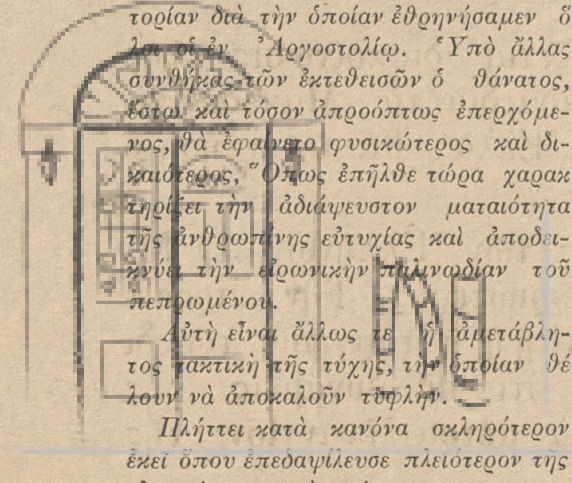 τορίαν διὰ τὴν ὁποίαν ἐθρηνήσαμεν ὅ
λοι οἱ ἐν Ἀργοστολίῳ. Ὑπὸ ἄλλας
συνθήκας τῶν ἐκτεθεισῶν ὁ θάνατος,
ἔστω καὶ τόσον ἀπροόπτως ἐπερχόμε-
νος, θὰ ἐφαίνετο φυσικώτερος καὶ δι-
καιότερος, Ὅπως ἐπῆλθε τώρα χαρακ
τηρίζει τὴν ἀδιάψευστον ματαιότητα
τῆς ἀνθρωπίνης εὐτυχίας καὶ ἀποδει-
κνύει τὴν εἰρωνικὴν παλινῳδίαν τοῦ
πεπρωμένου.
Αὐτὴ εἶναι ἄλλως τε ἡ ἀμετάβλη-
τος τακτικὴ τῆς τύχης, τὴν ὁποίαν θέ
λουν νὰ ἀποκαλοῦν τυφλὴν.
Πλήττει κατὰ κανόνα σκληρότερον
ἐκεῖ ὅπου ἐπεδαψίλευσε πλειότερον τῆς